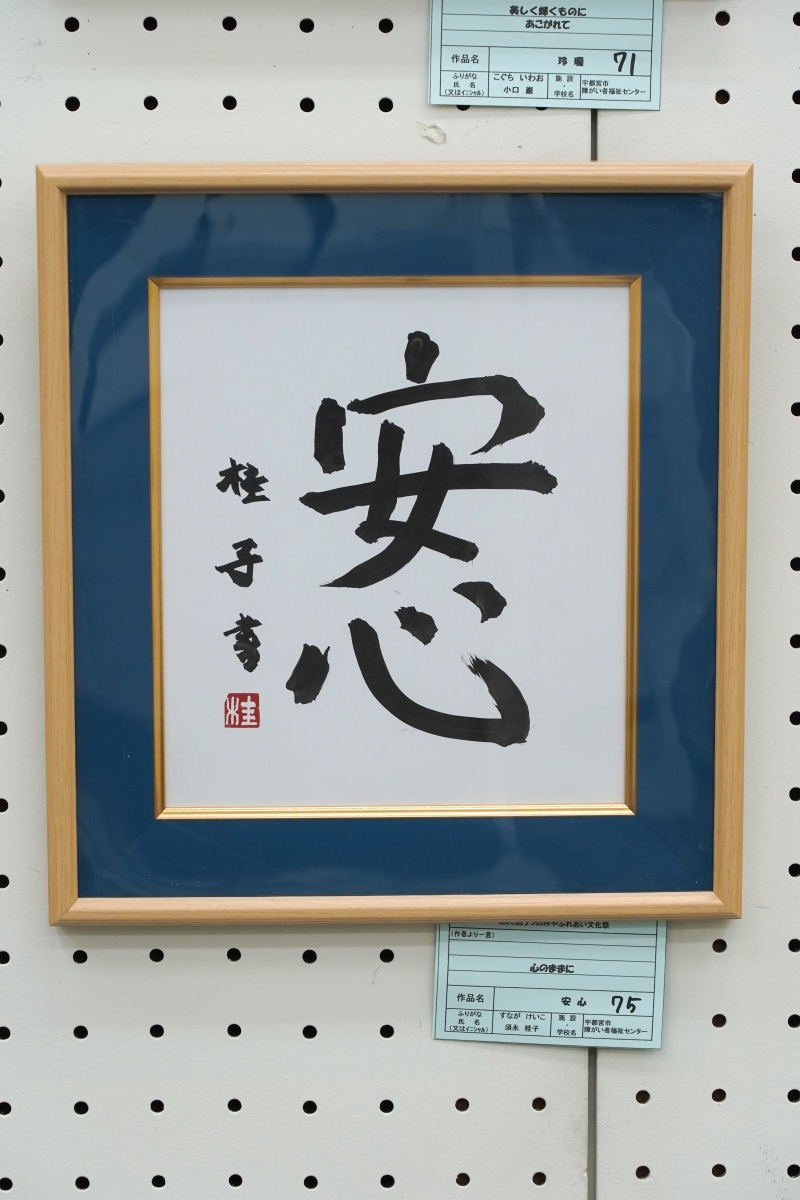 美しく輝くものに
あこがれて
作品名 玲瓏 71
ふりがな こぐち いわお 施設・学校名 宇都宮市
氏名 小口 巌 障がい者福祉センター
(又はイニシャル)
安心
桂子書
桂
ふれあい文化祭
(作者より一言)
心のままに
作品名 安心 75
ふりがな すなが けいこ 施設・学校名 宇都宮市
氏名 須永 桂子 障がい者福祉センター
(又はイニシャル)